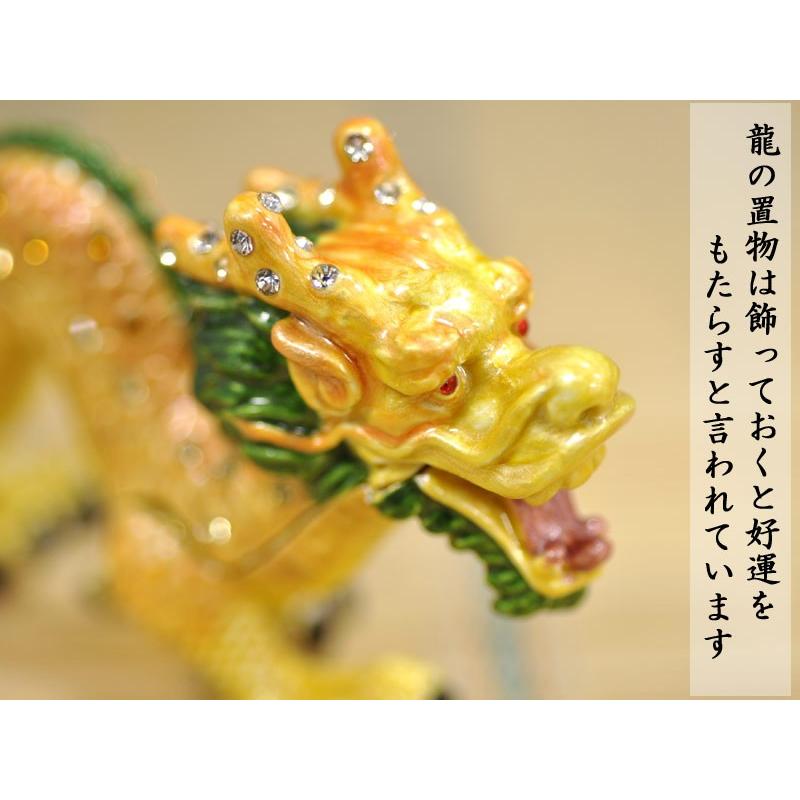 龍の置物は飾っておくと好運を
もたらすと言われています